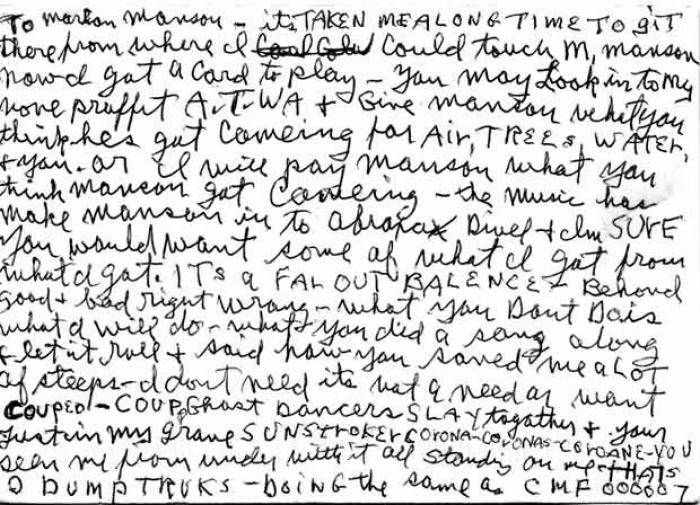 To marlon manson - its TAKEN ME A LONG TIME TO giT
there from where I could touch M, manson
now I got a card to play - you may Look in to My
none proffit A.T.WA & Give manson what you
think hes got comeing for Air, TREEs, WATER,
& you. or I will pay manson what you
think manson got comeing - the music has
make manson in to abrapax Divel & Im SURE
you would want some of what I got from
what I got. ITs a FAR OUT BALENCE - Behond
good & bad right wrong - what you Dont Do is
what I will do - what you did a song along
& let it roll & said how you saved me a LOT
of steeps - I dont need it its not a need or want
COUPED - COUP. Ghost Dancers SLAY together & your
just in my grave SUNSTROKER CORONA-CORONAS-COROANE-YOU
seen me from under with it all standing on me THATS
2 DUMP TRUKS - DOING the same as CMF 000007